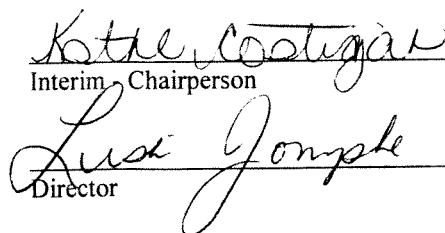 Kathe Costigan
Interim - Chairperson
Lusi Jomphe
Director